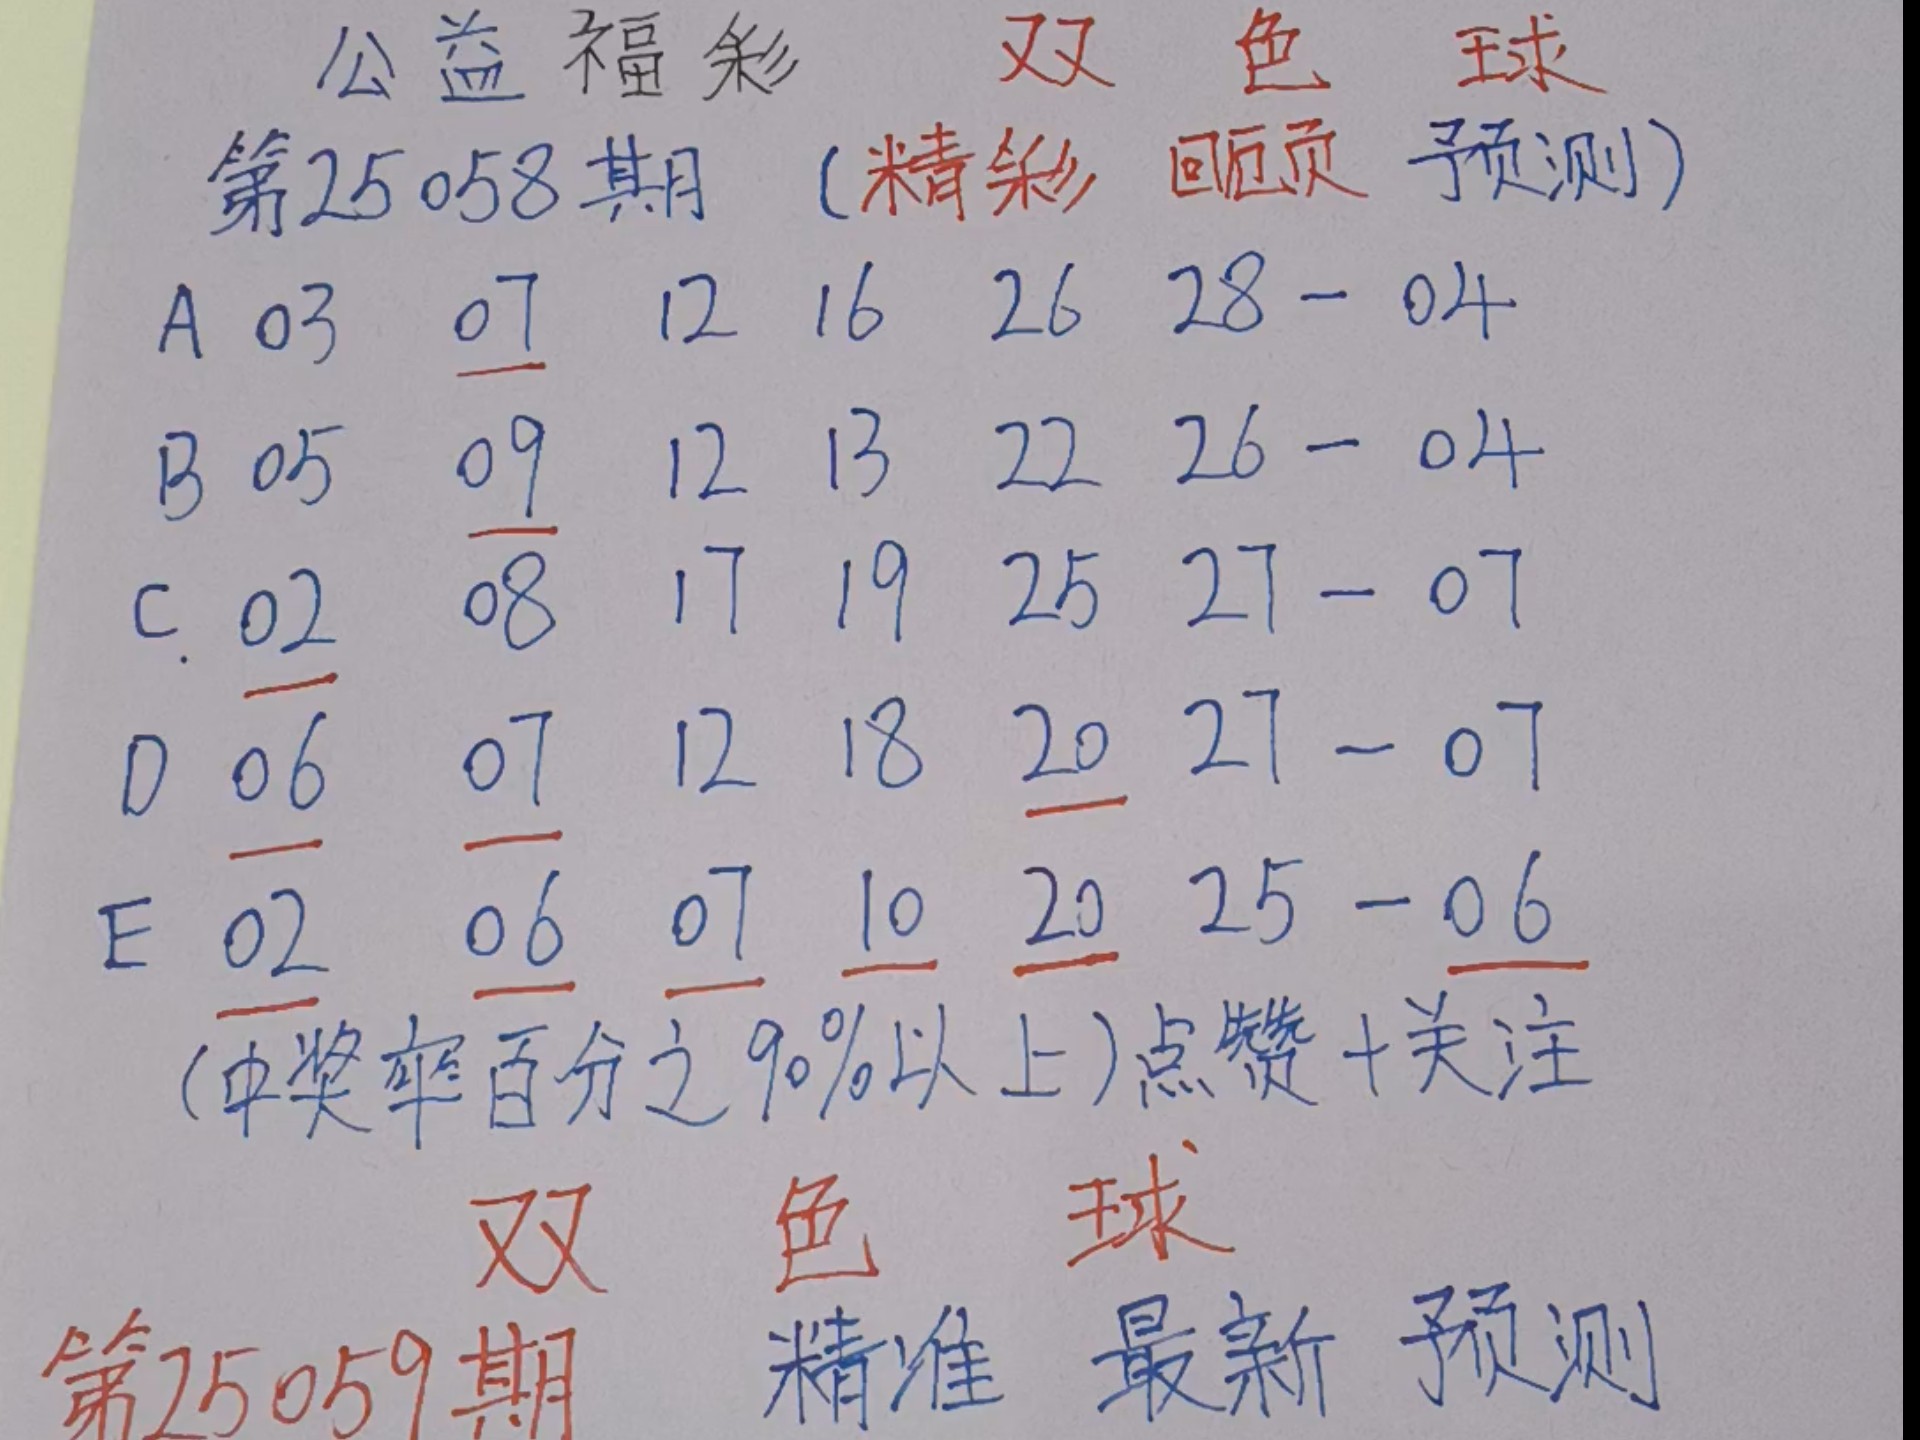 公益福彩 双色球
第25058期 (精彩回顾预测)
A 03 07 12 16 26 28 - 04
B 05 09 12 13 22 26 - 04
C. 02 08 17 19 25 27 - 07
D 06 07 12 18 20 27 - 07
E 02 06 07 10 20 25 - 06
(中奖率百分之90%以上)点赞+关注
双色球
第25059期 精准 最新 预测